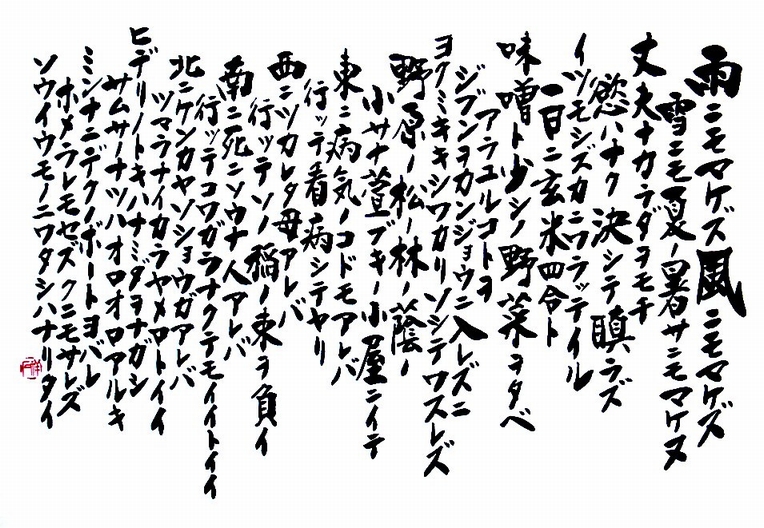 雨ニモマケズ風ニモマケズ
雪ニモ夏ノ暑サニモマケヌ
丈夫ナカラダヲモチ
慾ハナク決シテ瞋ラズ
イツモシズカニワラッテイル
一日ニ玄米四合ト
味噌ト少シノ野菜ヲタベ
アラユルコトヲ
ジブンヲカンジョウニ入レズニ
ヨクミキキシワカリソシテワスレズ
野原ノ松ノ林ノ蔭ノ
小サナ萱ブキノ小屋ニイテ
東ニ病気ノコドモアレバ
行ッテ看病シテヤリ
西ニツカレタ母アレバ
行ッテソノ稲ノ束ヲ負イ
南ニ死ニソウナ人アレバ
行ッテコワガラナクテモイイトイイ
北ニケンカヤソショウガアレバ
ツマラナイカラヤメロトイイ
ヒデリノトキハナミダヲナガシ
サムサノナツハオロオロアルキ
ミンナニデクノボートヨバレ
ホメラレモセズクニモサレズ
ソウイウモノニワタシハナリタイ